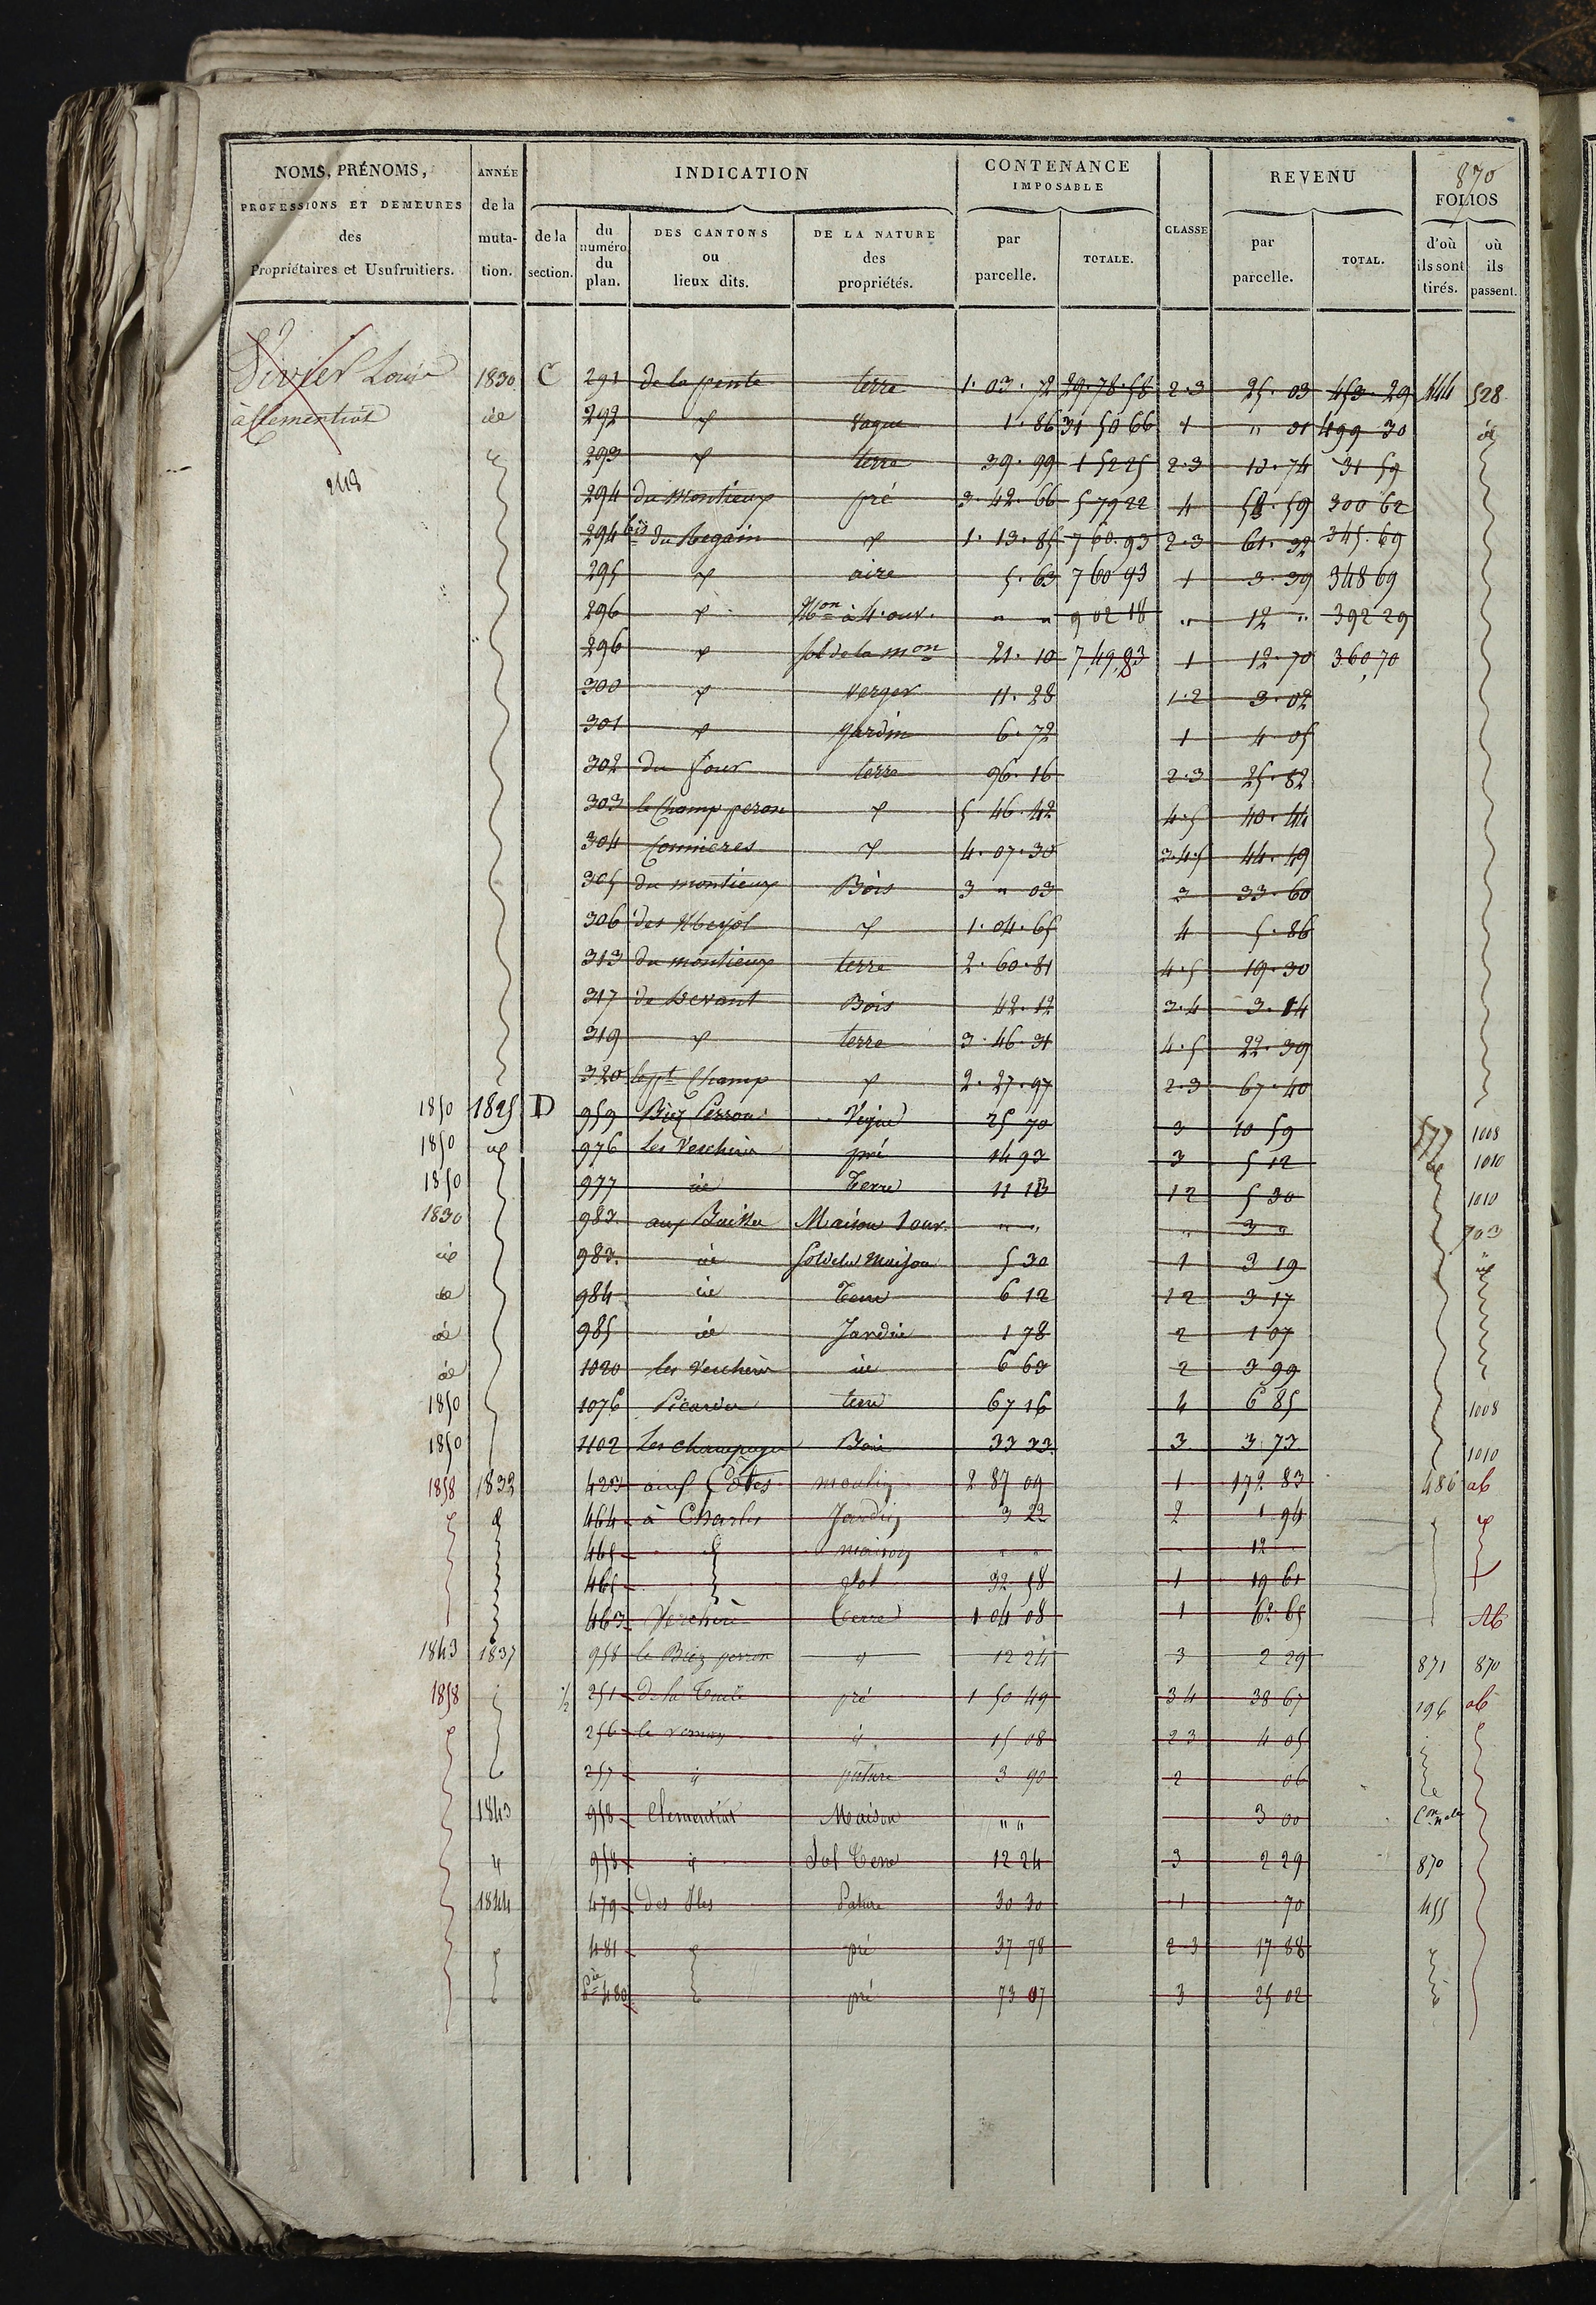 870
NOMS, PRÉNOMS, PROFESSIONS ET DEMEURES des Propriétaires et Usufruitiers.
ANNÉE de la mutation.
INDICATION
de la section.
du numéro du plan.
DES CANTONS ou lieux dits.
DE LA NATURE des propriétés.
CONTENANCE IMPOSABLE
par parcelle.
TOTALE.
CLASSE
REVENU
par parcelle.
TOTAL.
FOLIOS
d'où ils sont tirés.
où ils passent.
Louis 1830 C 291 de la pente terre 1. 03. 72 29. 78. 58 2.3 25. 03 453. 29 444 528
à Clementiat id 292 Vague 1. 86 31 50 66 1 " 01 499 30 id
293 terre 39. 99 1 52 25 2.3 13. 74 31 59
2118
294 du Montieux pré 3. 42. 66 5 79 22 4 58. 59 300 62
294 bis du Regain 1. 13. 85 7 60. 93 2.3 61. 32 345. 69
295 aire 5. 63 7 60 93 1 3. 39 348 69
296 Mon à 4. ouv. " " 9 02 18 " 12 " 392 29
296 sol de la mon 21. 10 7,49,83 1 12. 70 360,70
300 verger 11. 28 1.2 3. 02
301 jardin 6. 72 1 4. 05
302 du four terre 96. 16 2.3 25. 82
303 le Champ peron 5. 46. 42 4.5 40. 44
304 4. 07. 30 3.4.5 44. 49
305 du montieux Bois 3 " 03 3 33. 60
306 des 1. 04. 65 4 5. 86
313 du montieux terre 2. 60. 81 4.5 19. 30
317 de Devant Bois 42. 12 3.4 3. 14
319 terre 3. 46. 31 4.5 22. 39
320 le pt Champ 2. 27. 97 2.3 67. 40
1850 1825 D 959 Biez Perron Vigne 25 70 3 10 59 577 1008
1850 id 976 Les Verchere pré 14 93 3 5 12 id 1010
1850 977 id Terre 11 13 1 2 5 30 1010
1830 983 aux Maison 1 ouv. " " " 3 " 703
id 983. id sol de la Maison 5 30 1 3 19 id
id 984 id Terre 6 12 1 2 3 17
id 985 id Jardin 1 78 2 1 07
id 1020 les Verchere id 6 63 2 3 99
1850 1076 terre 67 16 4 6 85 1008
1850 1102 Les champagne Bois 33 33 3 3 73 1010
1858 1832 423 aux Côtes moulin 2 87 09 1 172 83 486 ab
464 à Charles Jardin 3 22 2 1 94
465 maison " " 12
465 Sol 32 58 1 19 61
463 Verchère Terre 1 04 08 1 62 65 Ab
1843 1837 958 le Biez perron 12 24 3 2 29 871 870
1858 1/2 251 de la pré 1 50 49 3 4 38 67 196 ab
256 le vernay id 15 08 2 3 4 05
257 id pature 3 90 2 06
1843 958 Clementiat Maison " " 3 00
id 958 id Sol Terre 12 24 3 2 29 870
1844 479 des Iles Pature 30 30 1 70 455
481 pré 37 78 2 3 17 88
Pie 480 pré 73 07 3 25 02